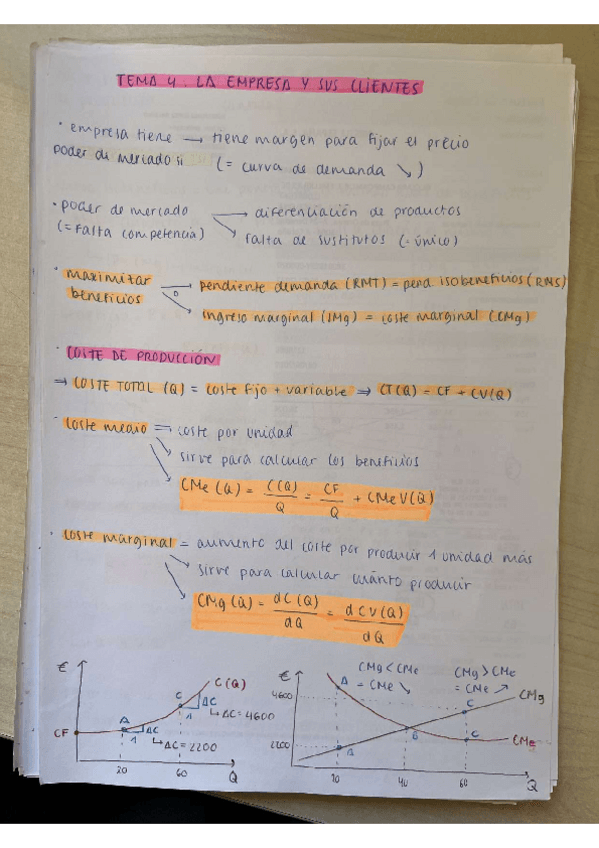 TEMA 4. LA EMPRESA Y SUS CLIENTES
· empresa tiene → tiene margen para fijar el precio
poder de mercado si (= curva de demanda ↘)
· poder de mercado → diferenciación de productos
(= falta competencia) ↘ falta de sustitutos (· único)
· maximizar → pendiente demanda (RMT) = pend. isobeneficios (RMS)
beneficios o ↘ ingreso marginal (IMg) = coste marginal (CMg)
· COSTE DE PRODUCCIÓN
⇒ COSTE TOTAL (Q) = coste fijo + variable ⇒ CT(Q) = CF + CV(Q)
- coste medio → coste por unidad
↘ sirve para calcular los beneficios
↘ CMe (Q) = C(Q)/Q = CF/Q + CMeV(Q)
· coste marginal = aumento del coste por producir 1 unidad más
↘ sirve para calcular cuánto producir
↘ CMg (Q) = dC(Q)/dQ = dCV(Q)/dQ
€ C(Q)
C ΔC
1 ↳ ΔC = 4600
CF A ΔC
1 ↳ ΔC = 2200
20 60 Q
€ CMg < CMe CMg > CMe
= CMe ↘ = CMe ↗
4600 A C CMg
B
2200 A C CMe
20 40 60 Q